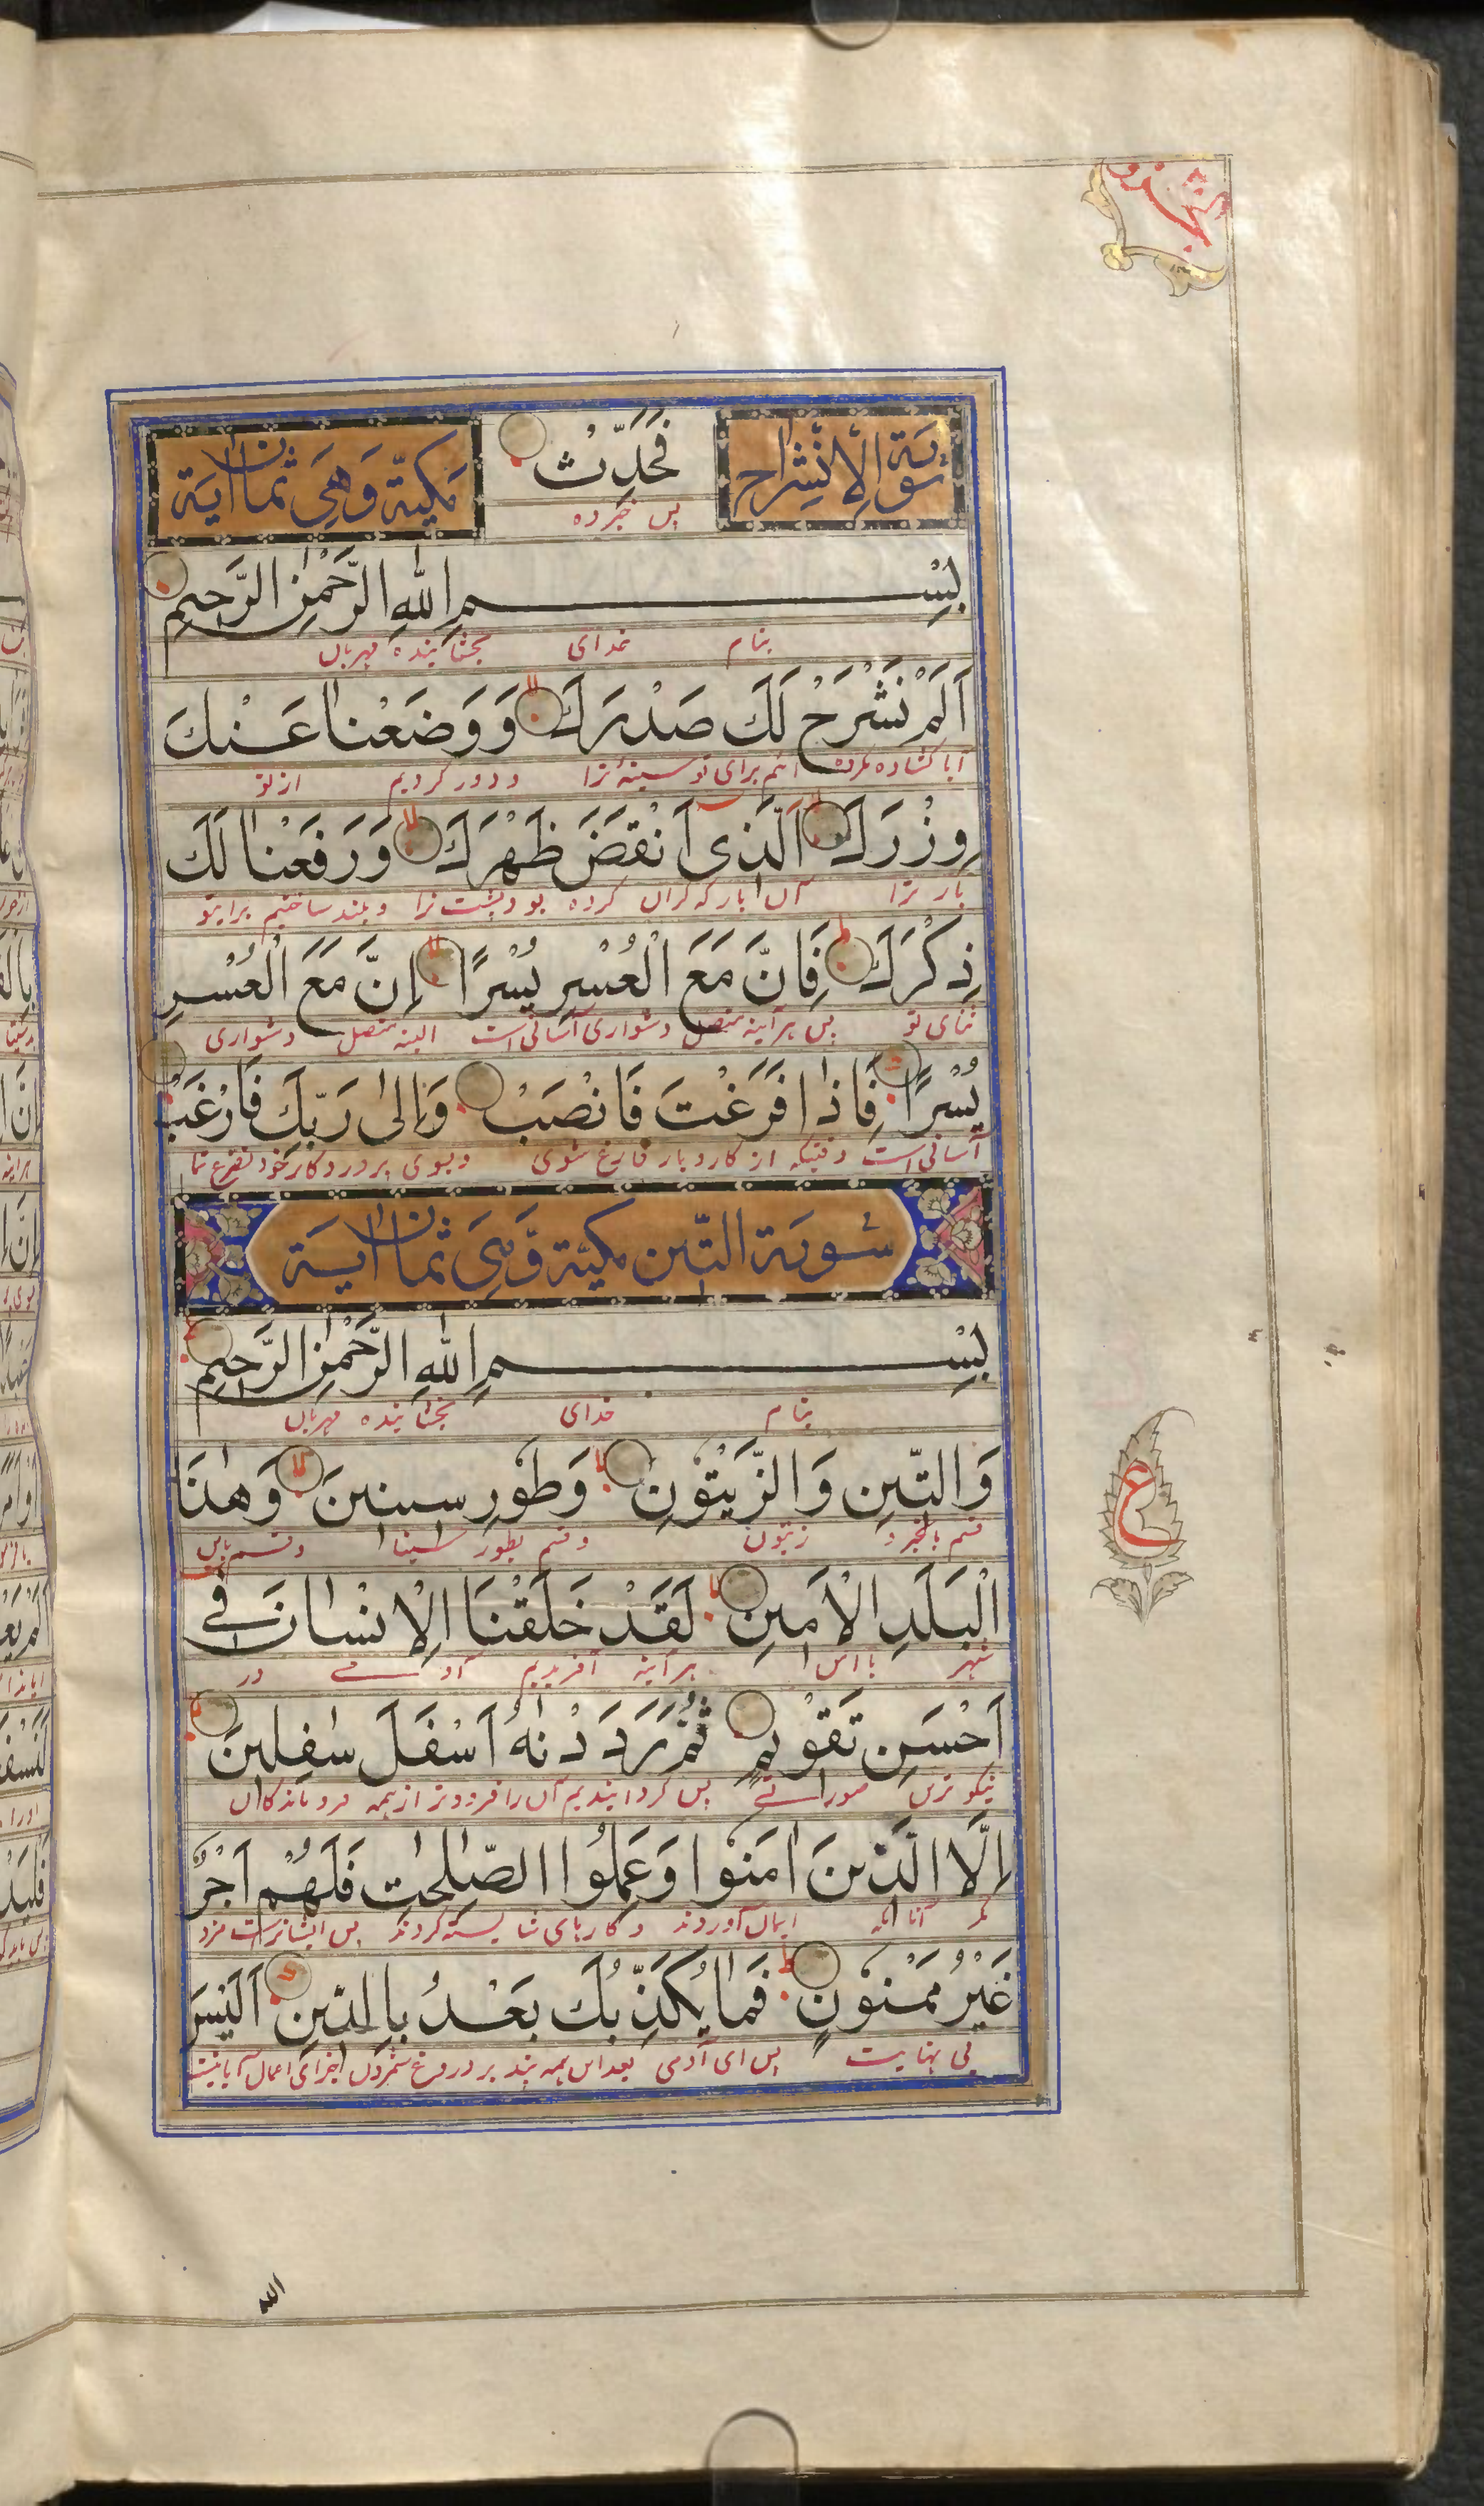 سُورَة الْاِنْشِرَاح فَحَدِّثْ مَكِّيَّة وَهِيَ ثَمَان اٰيَة
پس خبر ده
بِسْمِ اللّٰهِ الرَّحْمٰنِ الرَّحِيْمِ
بنام خدای بخشاینده مهربان
اَلَمْ نَشْرَحْ لَكَ صَدْرَكَ وَوَضَعْنَا عَنْكَ
آیا کشاده نکرده ایم برای تو سینهٔ ترا و دور کردیم از تو
وِزْرَكَ الَّذِى اَنْقَضَ ظَهْرَكَ وَرَفَعْنَا لَكَ
بار ترا آن بار که کران کرده بود پشت ترا و بلند ساختیم برای تو
ذِكْرَكَ فَاِنَّ مَعَ الْعُسْرِ يُسْرًا اِنَّ مَعَ الْعُسْرِ
ثنای تو پس هر آینه متصل دشواری آسانی است البته متصل دشواری
يُسْرًا فَاِذَا فَرَغْتَ فَانْصَبْ وَاِلٰى رَبِّكَ فَارْغَبْ
آسانی است وقتیکه از کار و بار فارغ شوی و بسوی پروردکار خود تضرع نما
سُورَة التِّيْن مَكِّيَّة وَّهِيَ ثَمَان اٰيَة
بِسْمِ اللّٰهِ الرَّحْمٰنِ الرَّحِيْمِ
بنام خدای بخشاینده مهربان
وَالتِّيْنِ وَالزَّيْتُوْنِ وَطُوْرِ سِيْنِيْنَ وَهٰذَا
قسم بانجیر و زیتون و قسم بطور سینا و قسم باین
الْبَلَدِ الْاَمِيْنِ لَقَدْ خَلَقْنَا الْاِنْسَانَ فِيْ
شهر با امن هر آینه آفریدیم آدمے در
اَحْسَنِ تَقْوِيْمٍ ثُمَّ رَدَدْنٰهُ اَسْفَلَ سٰفِلِيْنَ
نیکو ترین صورتے پس کردانیدیم آن را فرودتر از همه فروماندکان
اِلَّا الَّذِيْنَ اٰمَنُوْا وَعَمِلُوا الصّٰلِحٰتِ فَلَهُمْ اَجْرٌ
مکر آنانکه ایمان آوردند و کارهای شایسته کردند پس ایشانراست مزد
غَيْرُ مَمْنُوْنٍ فَمَا يُكَذِّبُكَ بَعْدُ بِالدِّيْنِ اَلَيْسَ
بی نهایت پس ای آدمی بعد این همه
ع
اللّه